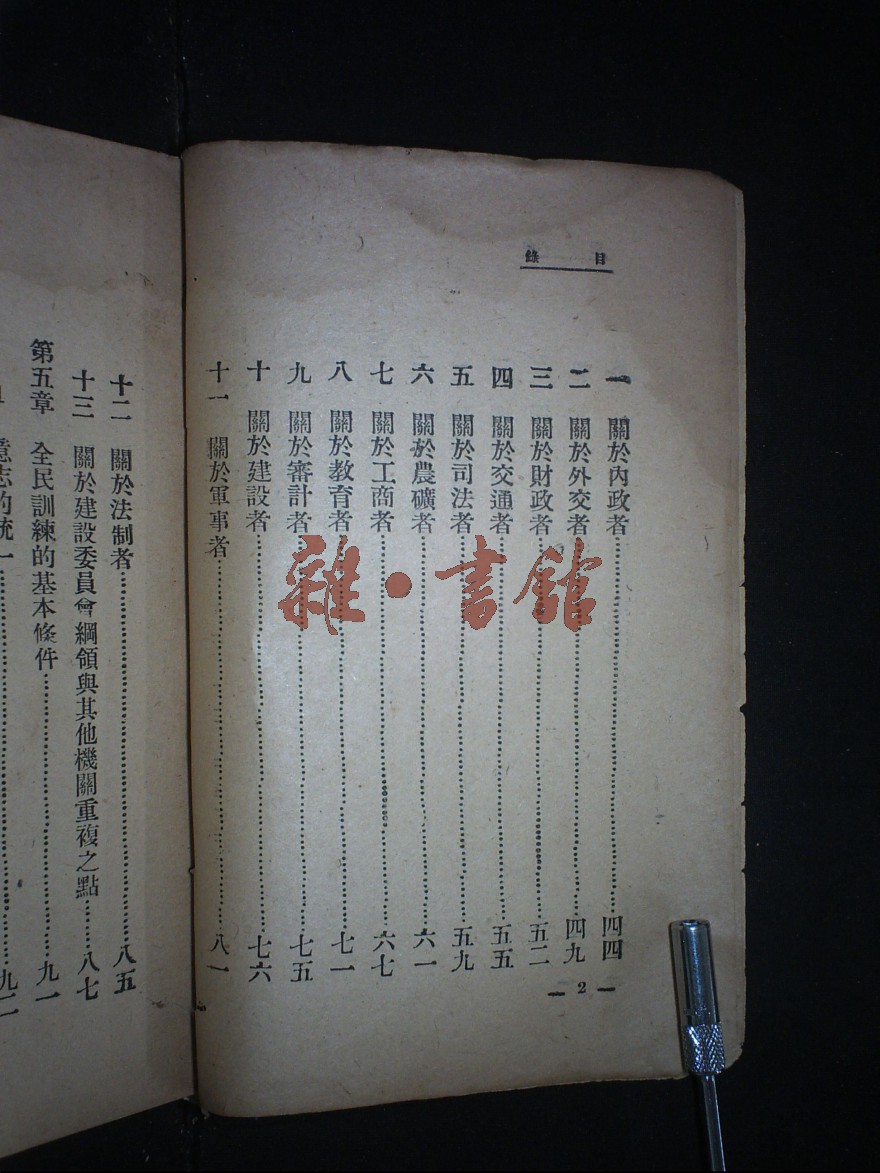 目錄
一 關於內政者 四四
二 關於外交者 四九
三 關於財政者 五二
四 關於交通者 五五
五 關於司法者 五九
六 關於農礦者 六一
七 關於工商者 六七
八 關於教育者 七一
九 關於審計者 七五
十 關於建設者 七六
十一 關於軍事者 八一
2
十二 關於法制者 八五
十三 關於建設委員會綱領與其他機關重複之點 八七
第五章 全民訓練的基本條件 九一
意志的統一 九二
雜·書館